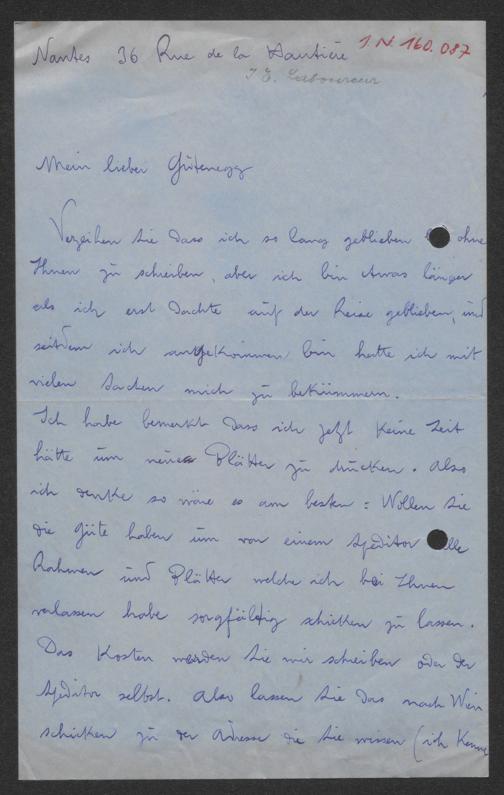 Nantes 36 Rue de la Hautière
J.N. 160.087
J. E. Laboureur
Mein lieber Gutenegg
Verzeihen Sie dass ich so lang geblieben ohne
Ihnen zu schreiben, aber ich bin etwas länger
als ich erst dachte auf der Reise geblieben, und
seitdem ich angekommen bin hatte ich mit
vielen Sachen mich zu bekümmern.
Ich habe bemerkt dass ich jetzt keine Zeit
hätte um neue Blätter zu drucken. Also
ich denke so wäre es am besten : Wollen Sie
die Güte haben um von einem Speditor alle
Rahmen und Blätter welche ich bei Ihnen
verlassen habe sorgfältig schicken zu lassen.
Das Kosten werden Sie mir schreiben oder der
Speditor selbst. Also lassen Sie das nach Wien
schicken zu der Adresse die Sie wissen (ich kenne